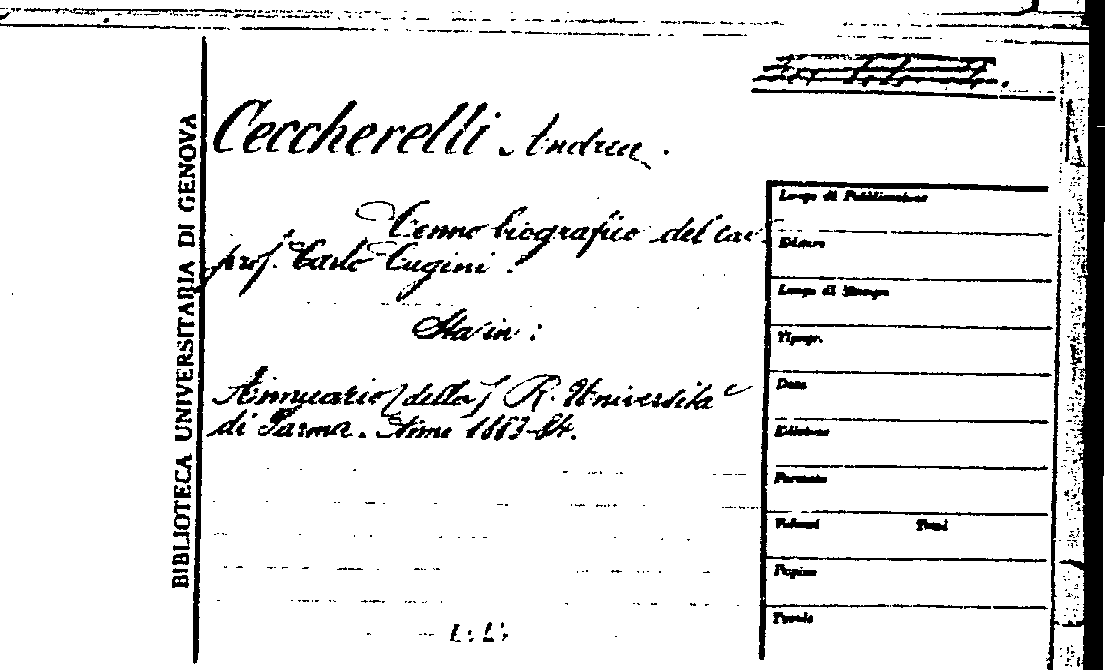 BIBLIOTECA UNIVERSITARIA DI GENOVA
Ceccherelli Andrea.
Cenno biografico del cav.
prof. Carlo Cugini.
Sta in:
Annuario (della) R. Università
di Parma. Anno 1883-84.
Luogo di Pubblicazione
Editore
Luogo di Stampa
Tipogr.
Data
Edizione
Formato
Volumi Tomi
Pagine
Tavole